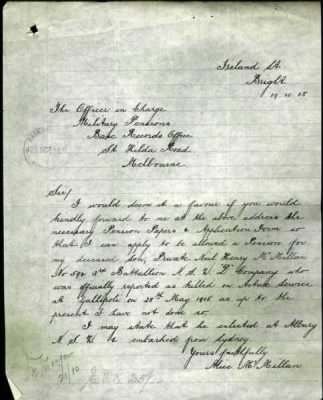 Ireland St.
Bright
19.10.15
The Officer in Charge
Military Pensions
Base Records Office
St Kilda Road
Melbourne
Sir/
I would deem it a favour if you would
kindly forward to me at the above address the
necessary Pension Papers & Application Form so
that I can apply to be allowed a Pension for
my deceased Son, Private Neil Henry McMillan
No 594 3rd Battallion N.S.W. D Company who
was officially reported as killed on Active Service
at Gallipoli on 28th May 1915 as up to the
present I have not done so.
I may state that he enlisted at Albury
N.S.W. & embarked from Sydney
Yours faithfully
Alice McMillan